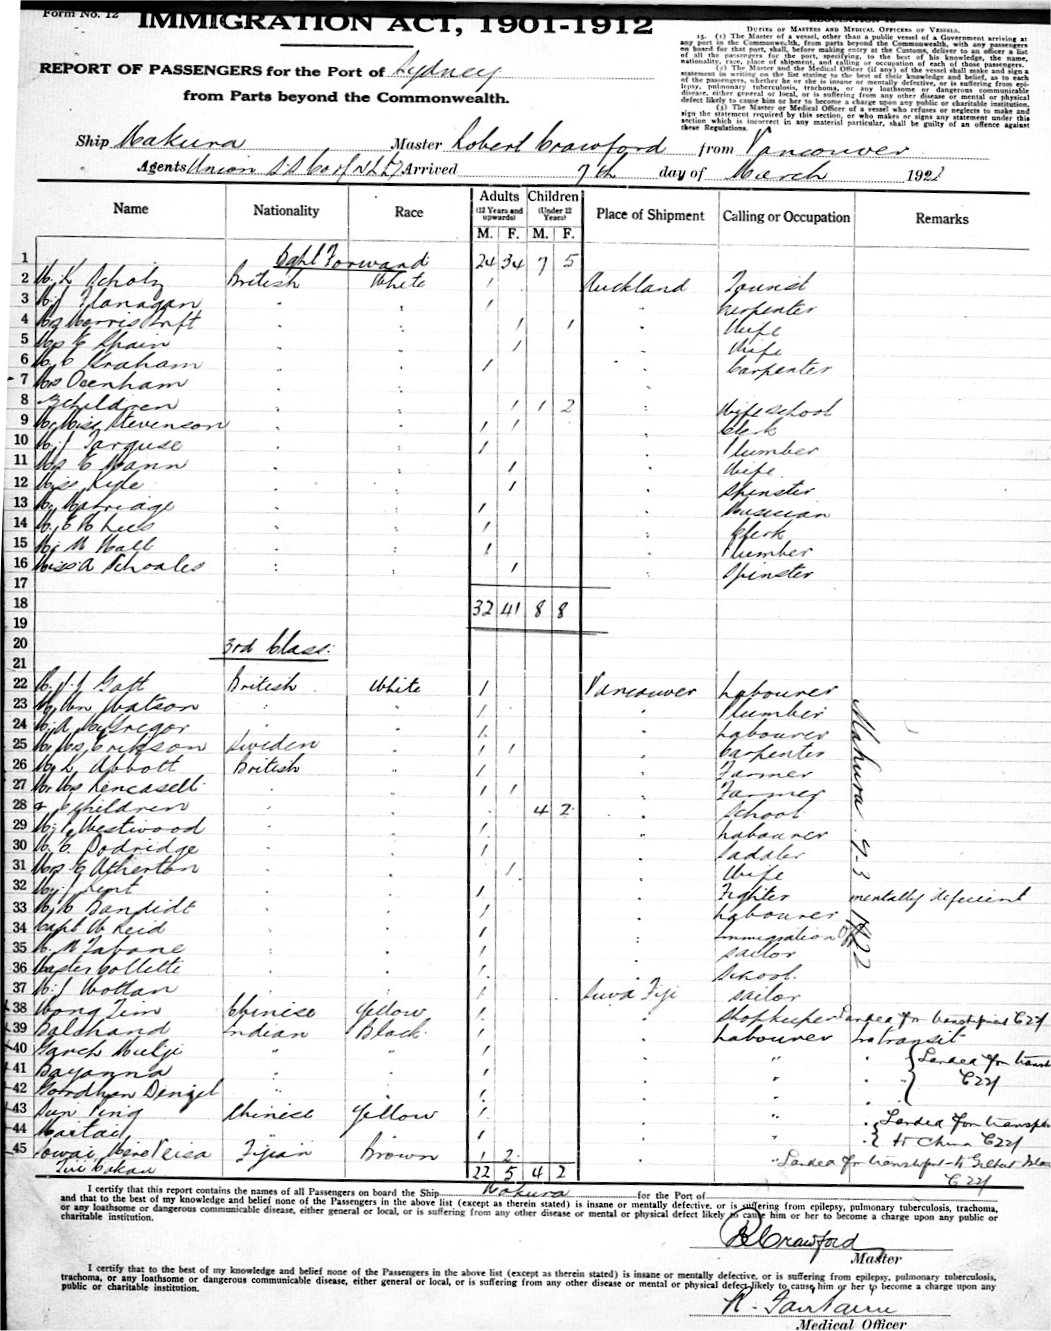 Form No. 12
IMMIGRATION ACT, 1901-1912
REPORT OF PASSENGERS for the Port of Sydney
from Parts beyond the Commonwealth.
REGULATION 15
DUTIES OF MASTERS AND MEDICAL OFFICERS OF VESSELS.
15. (1) The Master of a vessel, other than a public vessel of a Government arriving at
any port in the Commonwealth, from parts beyond the Commonwealth, with any passengers
on board for that port, shall, before making entry at the Customs, deliver to an officer a list
of all the passengers for the port, specifying, to the best of his knowledge, the name,
nationality, race, place of shipment, and calling or occupation of each of those passengers.
(2) The Master and the Medical Officer (if any) of the vessel shall make and sign a
statement in writing on the list stating to the best of their knowledge and belief, as to each
of the passengers, whether he or she is insane or mentally defective, or is suffering from epi-
lepsy, pulmonary tuberculosis, trachoma, or any loathsome or dangerous communicable
disease, either general or local, or is suffering from any other disease or mental or physical
defect likely to cause him or her to become a charge upon any public or charitable institution.
(3) The Master or Medical Officer of a vessel who refuses or neglects to make and
sign the statement required by this section, or who makes or signs any statement under this
section which is incorrect in any material particular, shall be guilty of an offence against
these Regulations.
Ship Makura Master Robert Crawford from Vancouver
Agents Union S S Co of N.Z. Ld Arrived 7th day of March 1922
Name Nationality Race Adults (12 Years and upwards) Children (Under 12 Years) Place of Shipment Calling or Occupation Remarks
M. F. M. F.
1 Forward 24 34 7 5
2 Mr L Scholz British White 1 Auckland Tourist
3 Mr J Flanagan " " 1 " Carpenter
4 Mrs Morris " " 1 1 " Wife
5 Mrs E Spain " " 1 Wife
6 Mr C Graham " " 1 " Carpenter
7 Mrs Deenham " " "
8 3 children " " 1 1 2 " Wife School
9 Mr Miss Stevenson " " 1 1 " Clerk
10 Mr J Tarquse " " 1 " Plumber
11 Mrs E Mann " " 1 " Wife
12 Miss Kyle " " 1 " Spinster
13 Mr Marriage " " 1 " Musician
14 " " 1 " Clerk
15 Mr M Hall " " 1 " Plumber
16 Miss A Schoales " " 1 " Spinster
17
18 32 41 8 8
19
20 3rd Class.
21
22 Gatt British White 1 Vancouver Labourer
23 Mr Wm Watson " " 1 " Plumber
24 Mr A McGregor " " 1 " Labourer
25 Mr Mrs Erickson Sweden " 1 1 " Carpenter
26 Mr L Abbott British " 1 " Farmer
27 Mr Mrs Kencasell " " 1 1 " Farmer
28 + 6 children " " 4 2 " School
29 Westwood " " 1 " Labourer
30 Mr C. Dodridge " " 1 " Saddler
31 Mrs G Atherton " " 1 " Wife
32 Mr J Kent " " 1 " Fighter mentally deficient
33 Mr C Bandidt " " 1 " Labourer
34 Capt W Reid " " 1 " Immigration Off
35 Mr N Tabone " " 1 " Sailor
36 Master Collette " " 1 " School.
37 Mr J Wottan " " 1 Suva Fiji Sailor
38 Wong Tim Chinese Yellow 1 " Shopkeeper Landed for transhipment
39 Balchand Indian Black 1 " Labourer In transit
40 Ganch Mulji " " 1 " " Landed for transh
41 Bayanna " " 1 " "
42 Goordhan Dengel " " 1 " "
43 Sun Ping Chinese Yellow 1 " " Landed for transhp
44 Maitai " " 1 " " to China
45 Towai, Mere Veisa Fijian Brown 1 2 " " Landed for transhpt to Gilbert Islan
Tui Cakau 22 5 4 2
Makura 7-3 1922
I certify that this report contains the names of all Passengers on board the Ship Makura for the Port of
and that to the best of my knowledge and belief none of the Passengers in the above list (except as therein stated) is insane or mentally defective, or is suffering from epilepsy, pulmonary tuberculosis, trachoma,
or any loathsome or dangerous communicable disease, either general or local, or is suffering from any other disease or mental or physical defect likely to cause him or her to become a charge upon any public or
charitable institution.
R Crawford
Master
I certify that to the best of my knowledge and belief none of the Passengers in the above list (except as therein stated) is insane or mentally defective, or is suffering from epilepsy, pulmonary tuberculosis,
trachoma, or any loathsome or dangerous communicable disease, either general or local, or is suffering from any other disease or mental or physical defect likely to cause him or her to become a charge upon any
public or charitable institution.
Medical Officer